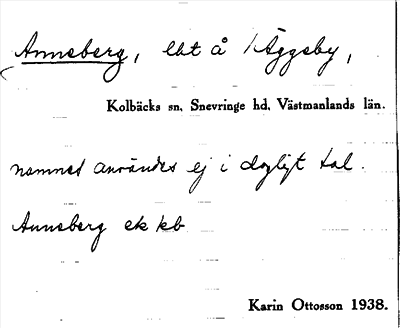 Anneberg, lht å 1 Äggeby,
Kolbäcks sn, Snevringe hd, Västmanlands län.
namnet användes ej i dagligt tal.
Anneberg ek kb
Karin Ottosson 1938.